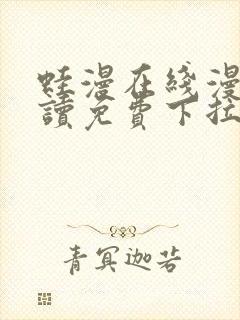 蛙漫在线漫
讀免費下拉
青冥迦若